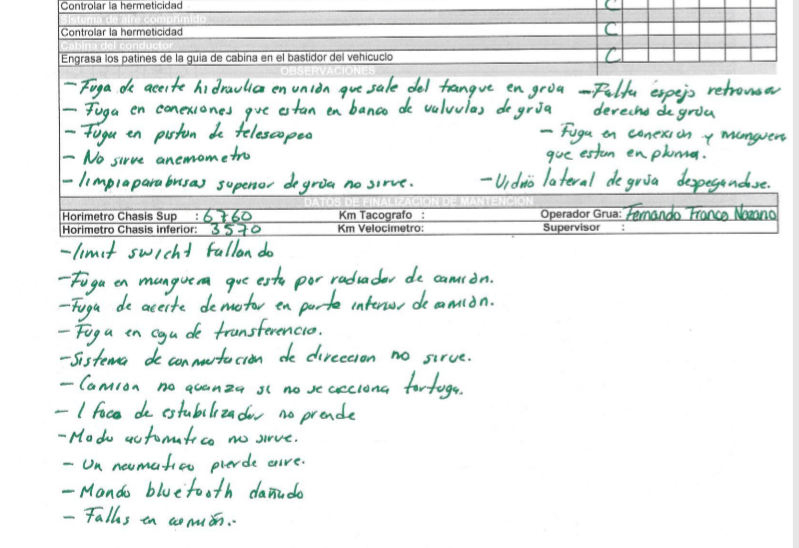 Controlar la hermeticidad C
Sistema de aire comprimido
Controlar la hermeticidad C
Cabina del conductor
Engrasa los patines de la guia de cabina en el bastidor del vehicuclo C
OBSERVACIONES
- Fuga de aceite hidraulico en unión que sale del tanque en grúa
- Fuga en conexiones que estan en banco de valvulas de grúa
- Fuga en piston de telescopeo
- No sirve anemometro
- limpiaparabrisas superior de grúa no sirve.
- Falta espejo retrovisor
derecho de grúa
- Fuga en conexion y manguera
que estan en pluma.
- Vidrio lateral de grúa despegandose.
DATOS DE FINALIZACION DE MANTENCION
Horimetro Chasis Sup : 6760 Km Tacografo : Operador Grua: Fernando Franco Nazano
Horimetro Chasis inferior: 3570 Km Velocimetro: Supervisor :
- limit swicht fallando
- Fuga en manguera que esta por radiador de camión.
- Fuga de aceite de motor en parte inferior de camión.
- Fuga en caja de transferencia.
- Sistema de conmutación de direccion no sirve.
- Camion no avanza si no se acciona tortuga.
- 1 foco de estabilizador no prende
- Modo automatico no sirve.
- Un neumatico pierde aire.
- Mando bluetooth dañado
- Fallas en camión.-